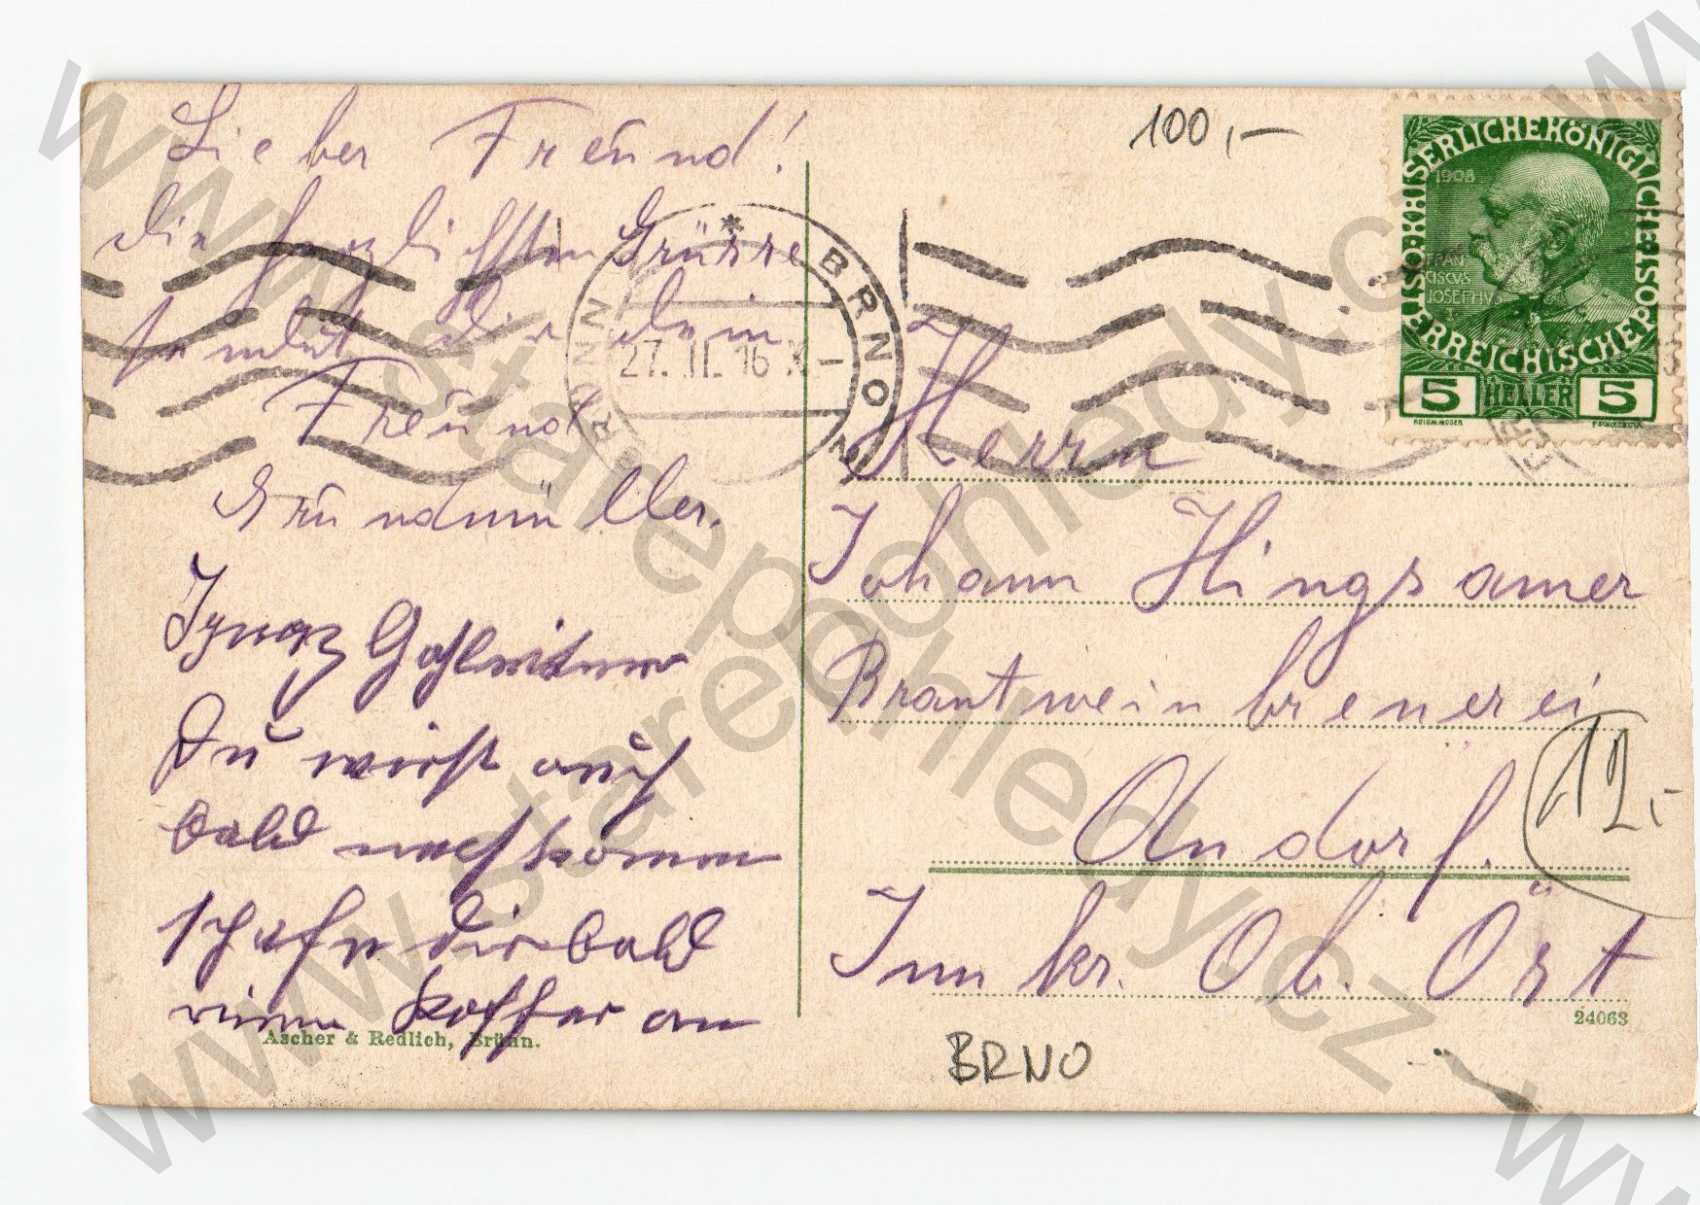 Lieber Freund!
die herzlichsten Grüsse
sendet dir dein
Freund
Gründmüller.
Ignaz
Du wirst auch
bald nachkommen
schafe dir bald
einen Koffer an
Ascher & Redlich, Brünn.
* BRNO
BRÜNN
27. II. 16 X-
100,-
KAISERLICHE KÖNIGLICHE
ÖSTERREICHISCHE POST
1908
FRAN
CISCVS
JOSEPHVS
I.
5 HELLER 5
Herrn
Johann Hingsamer
Brantweinbrenerei
Andorf.
Innkr. Ob. Öst
12,-
24063
BRNO
www.starepohledy.cz
www.starepohledy.cz